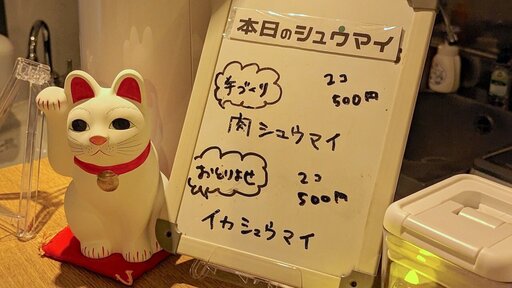 本日のシュウマイ
手づくり
2コ
500円
肉シュウマイ
おとりよせ
2コ
500円
イカシュウマイ